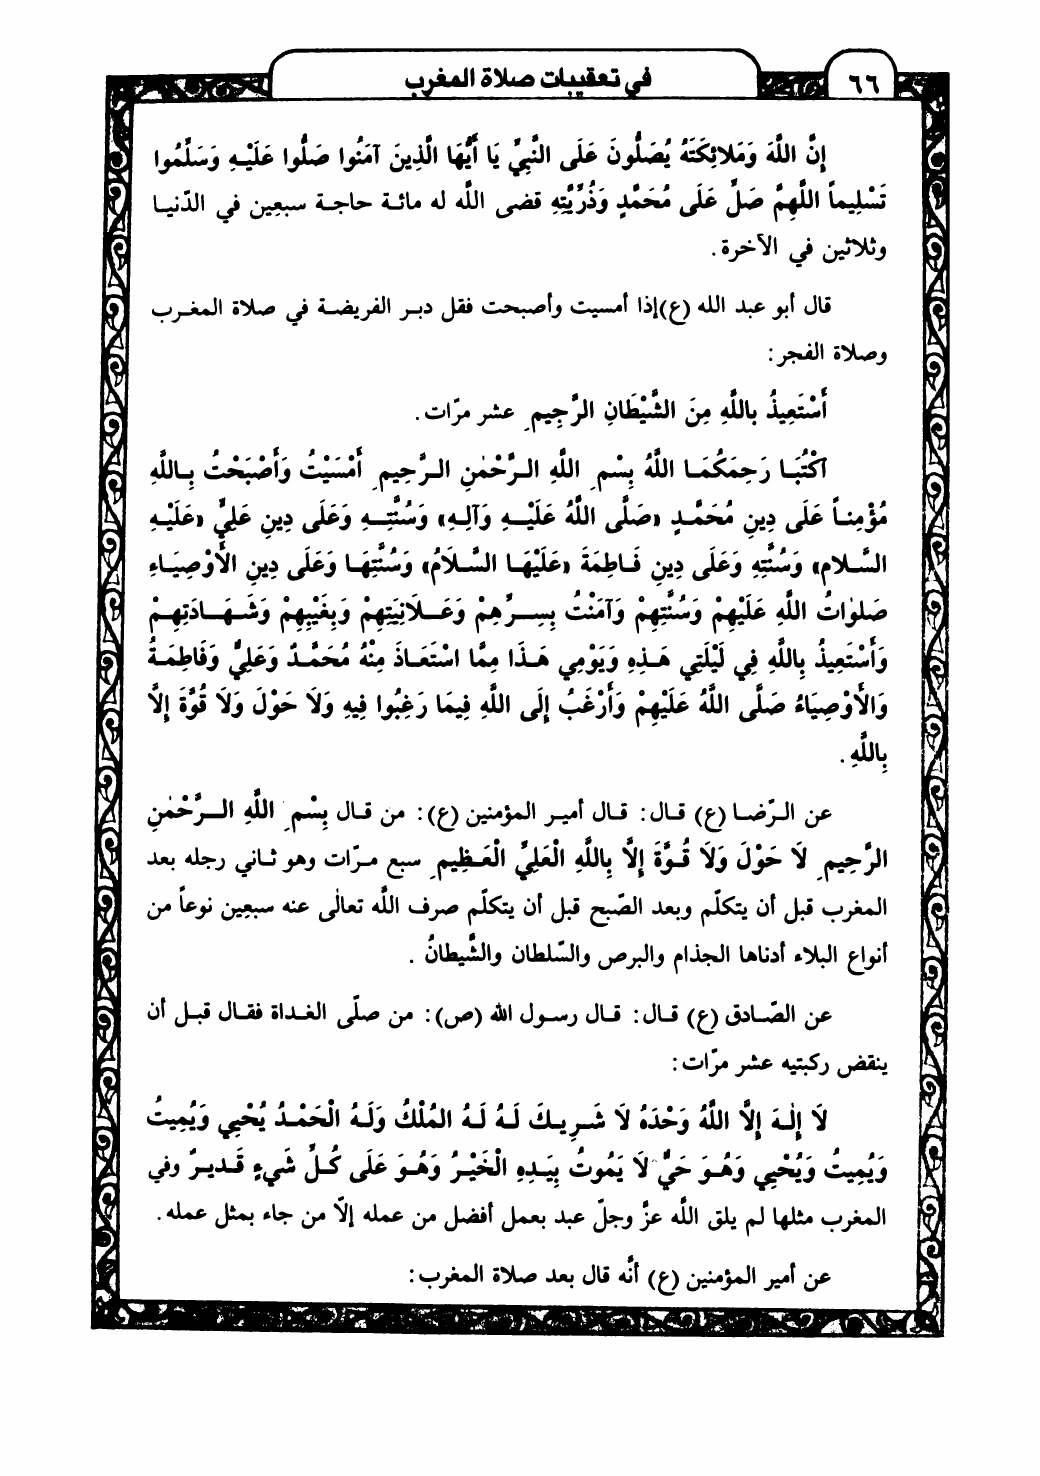 ٦٦
في تعقيبات صلاة المغرب
إِنَّ اللَّهَ وَمَلائِكَتَهُ يُصَلُّونَ عَلَى النَّبِيِّ يَا أَيُّهَا الَّذِينَ آمَنُوا صَلُّوا عَلَيْهِ وَسَلِّمُوا
تَسْلِيماً اللَّهِمَّ صَلِّ عَلَى مُحَمَّدٍ وَذُرِّيَّتِهِ قضى اللَّه له مائة حاجة سبعين في الدّنيا
وثلاثين في الآخرة .
قال أبو عبد الله (ع)إذا أمسيت وأصبحت فقل دبر الفريضة في صلاة المغرب
وصلاة الفجر :
أَسْتَعِيذُ باللَّهِ مِنَ الشَّيْطَانِ الرَّجِيمِ عشر مرّات .
آكْتُبَا رَحِمَكُمَا اللَّهُ بِسْمِ اللَّهِ الرَّحْمٰنِ الرَّحِيمِ أَمْسَيْتُ وَأَصْبَحْتُ بِاللَّهِ
مُؤْمِناً عَلَى دِينِ مُحَمَّدٍ «صَلَّى اللَّهُ عَلَيْهِ وَآلِهِ» وَسُنَّتِهِ وَعَلَى دِينِ عَلِيٍّ «عَلَيْهِ
السَّلام» وَسُنَّتِهِ وَعَلَى دِينِ فَاطِمَةَ «عَلَيْهَا السَّلاَمُ» وَسُنَّتِهَا وَعَلَى دِينِ الأَوْصِيَاءِ
صَلوٰاتُ اللَّهِ عَلَيْهِمْ وَسُنَّتِهِمْ وَآمَنْتُ بِسِرِّهِمْ وَعَلاَنِيَتِهِمْ وَبِغَيْبِهِمْ وَشَهَادَتِهِمْ
وَأَسْتَعِيذُ بِاللَّهِ فِي لَيْلَتِي هَذِهِ وَيَوْمِي هَذَا مِمَّا اسْتَعَاذَ مِنْهُ مُحَمَّدٌ وَعَلِيٌّ وَفَاطِمَةُ
وَالأَوْصِيَاءُ صَلَّى اللَّهُ عَلَيْهِمْ وَأَرْغَبُ إِلَى اللَّهِ فِيمَا رَغِبُوا فِيهِ وَلاَ حَوْلَ وَلاَ قُوَّةَ إِلاَّ
بِاللَّهِ .
عن الرّضا (ع) قال : قال أمير المؤمنين (ع) : من قال بِسْمِ اللَّهِ الرَّحْمٰنِ
الرَّحِيمِ لاَ حَوْلَ وَلاَ قُوَّةَ إِلاَّ بِاللَّهِ الْعَلِيِّ الْعَظِيمِ سبع مرّات وهو ثاني رجله بعد
المغرب قبل أن يتكلّم وبعد الصّبح قبل أن يتكلّم صرف اللَّه تعالى عنه سبعين نوعاً من
أنواع البلاء أدناها الجذام والبرص والسّلطان والشَّيطانُ .
عن الصّادق (ع) قال : قال رسول الله (ص) : من صلّى الغداة فقال قبل أن
ينقض ركبتيه عشر مرّات :
لاَ إِلٰهَ إِلاَّ اللَّهُ وَحْدَهُ لاَ شَرِيكَ لَهُ لَهُ المُلْكُ وَلَهُ الْحَمْدُ يُحْيِي وَيُمِيتُ
وَيُمِيتُ وَيُحْيِي وَهُوَ حَيٌّ لاَ يَمُوتُ بِيَدِهِ الْخَيْرُ وَهُوَ عَلَى كُلِّ شَيءٍ قَدِيرٌ وفي
المغرب مثلها لم يلق اللَّه عزَّ وجلّ عبد بعمل أفضل من عمله إلاّ من جاء بمثل عمله .
عن أمير المؤمنين (ع) أنَّه قال بعد صلاة المغرب :